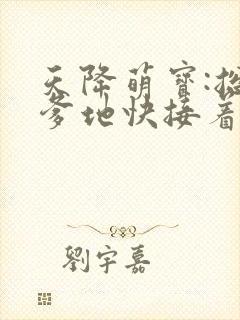 天降萌寶:
爹地快接着
劉宇嘉